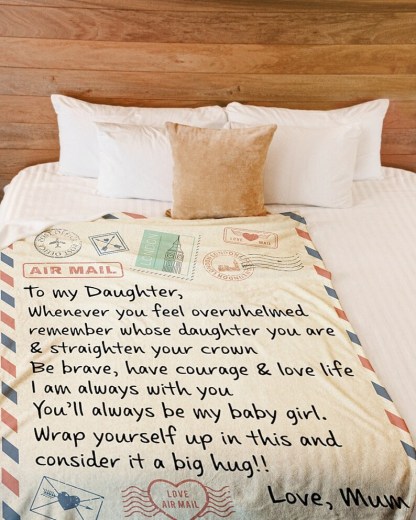 LOVE MAIL
AIR MAIL
To my Daughter,
Whenever you feel overwhelmed
remember whose daughter you are
& straighten your crown
Be brave, have courage & love life
I am always with you
You'll always be my baby girl.
Wrap yourself up in this and
consider it a big hug!!
Love, Mum
LOVE
AIR MAIL